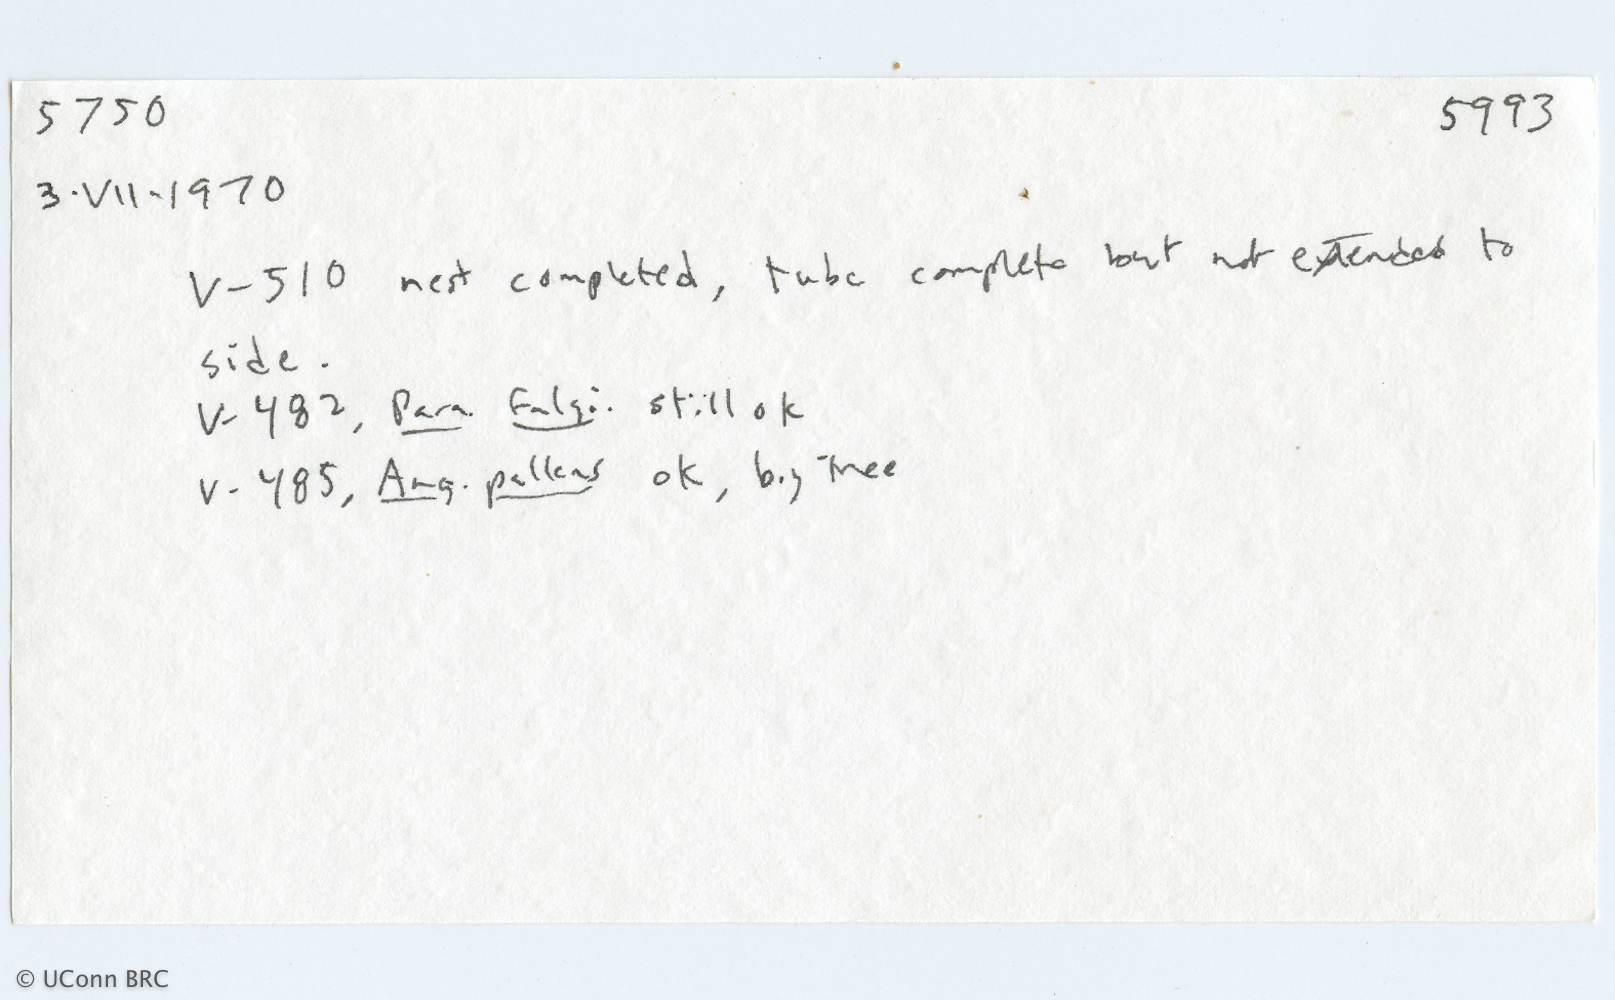 5750 5993
3-VII-1970
V-510 nest completed, tube complete but not extended to
side.
V-482, Para. Fulgi. still ok
V-485, Ang. pallens ok, big tree
© UConn BRC